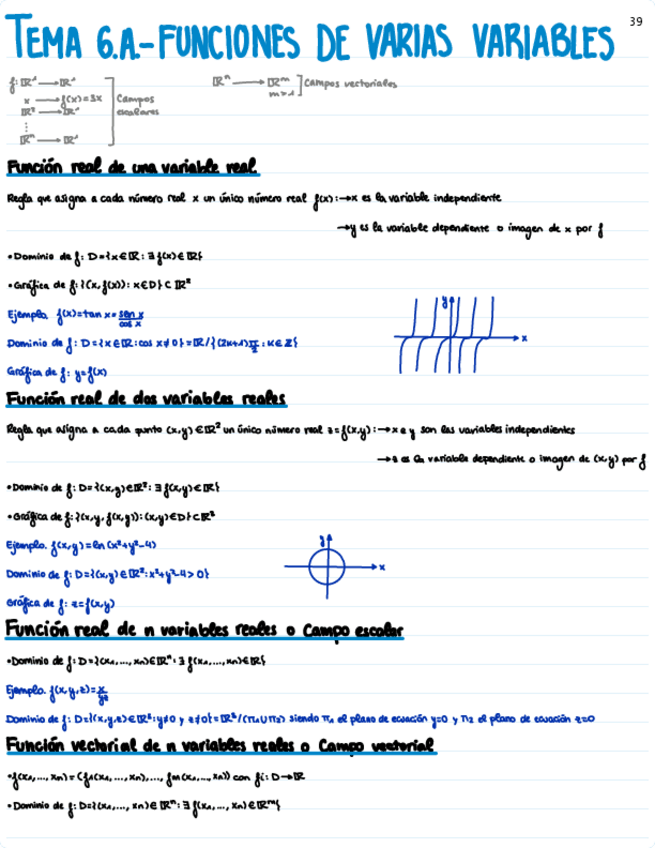 39
TEMA 6.A.- FUNCIONES DE VARIAS VARIABLES
f: ℝ¹ → ℝ¹
x → f(x) = 3x
ℝ² → ℝ¹
⋮
ℝⁿ → ℝ¹
Campos
escalares
ℝⁿ → ℝᵐ
m > 1
Campos vectoriales
Función real de una variable real
Regla que asigna a cada número real x un único número real f(x): → x es la variable independiente
→ y es la variable dependiente o imagen de x por f
• Dominio de f: D = {x ∈ ℝ : ∃ f(x) ∈ ℝ}
• Gráfica de f: {(x, f(x)) : x ∈ D} ⊂ ℝ²
Ejemplo. f(x) = tan x = sen x / cos x
Dominio de f: D = {x ∈ ℝ : cos x ≠ 0} = ℝ / {(2k+1) π/2 : k ∈ ℤ}
Gráfica de f: y = f(x)
y
x
Función real de dos variables reales
Regla que asigna a cada punto (x,y) ∈ ℝ² un único número real z = f(x,y): → x e y son las variables independientes
→ z es la variable dependiente o imagen de (x,y) por f
• Dominio de f: D = {(x,y) ∈ ℝ² : ∃ f(x,y) ∈ ℝ}
• Gráfica de f: {(x, y, f(x,y)) : (x,y) ∈ D} ⊂
Ejemplo. f(x,y) = ln (x² + y² - 4)
Dominio de f: D = {(x,y) ∈ ℝ² : x² + y² - 4 > 0}
Gráfica de f: z = f(x,y)
y
x
Función real de n variables reales o Campo escalar
• Dominio de f: D = {(x₁, ..., xₙ) ∈ ℝⁿ : ∃ f(x₁, ..., xₙ) ∈ ℝ}
Ejemplo. f(x,y,z) = x / yz
Dominio de f: D = {(x,y,z) ∈ ℝ³ : y ≠ 0 y z ≠ 0} = ℝ³ / (π₁ ∪ π₂) siendo π₁ el plano de ecuación y=0 y π₂ el plano de ecuación z=0
Función vectorial de n variables reales o Campo vectorial
• f(x₁, ..., xₙ) = (f₁(x₁, ..., xₙ), ..., fm(x₁, ..., xₙ)) con fi: D → ℝ
• Dominio de f: D = {(x₁, ..., xₙ) ∈ ℝⁿ : ∃ f(x₁, ..., xₙ) ∈ ℝᵐ}